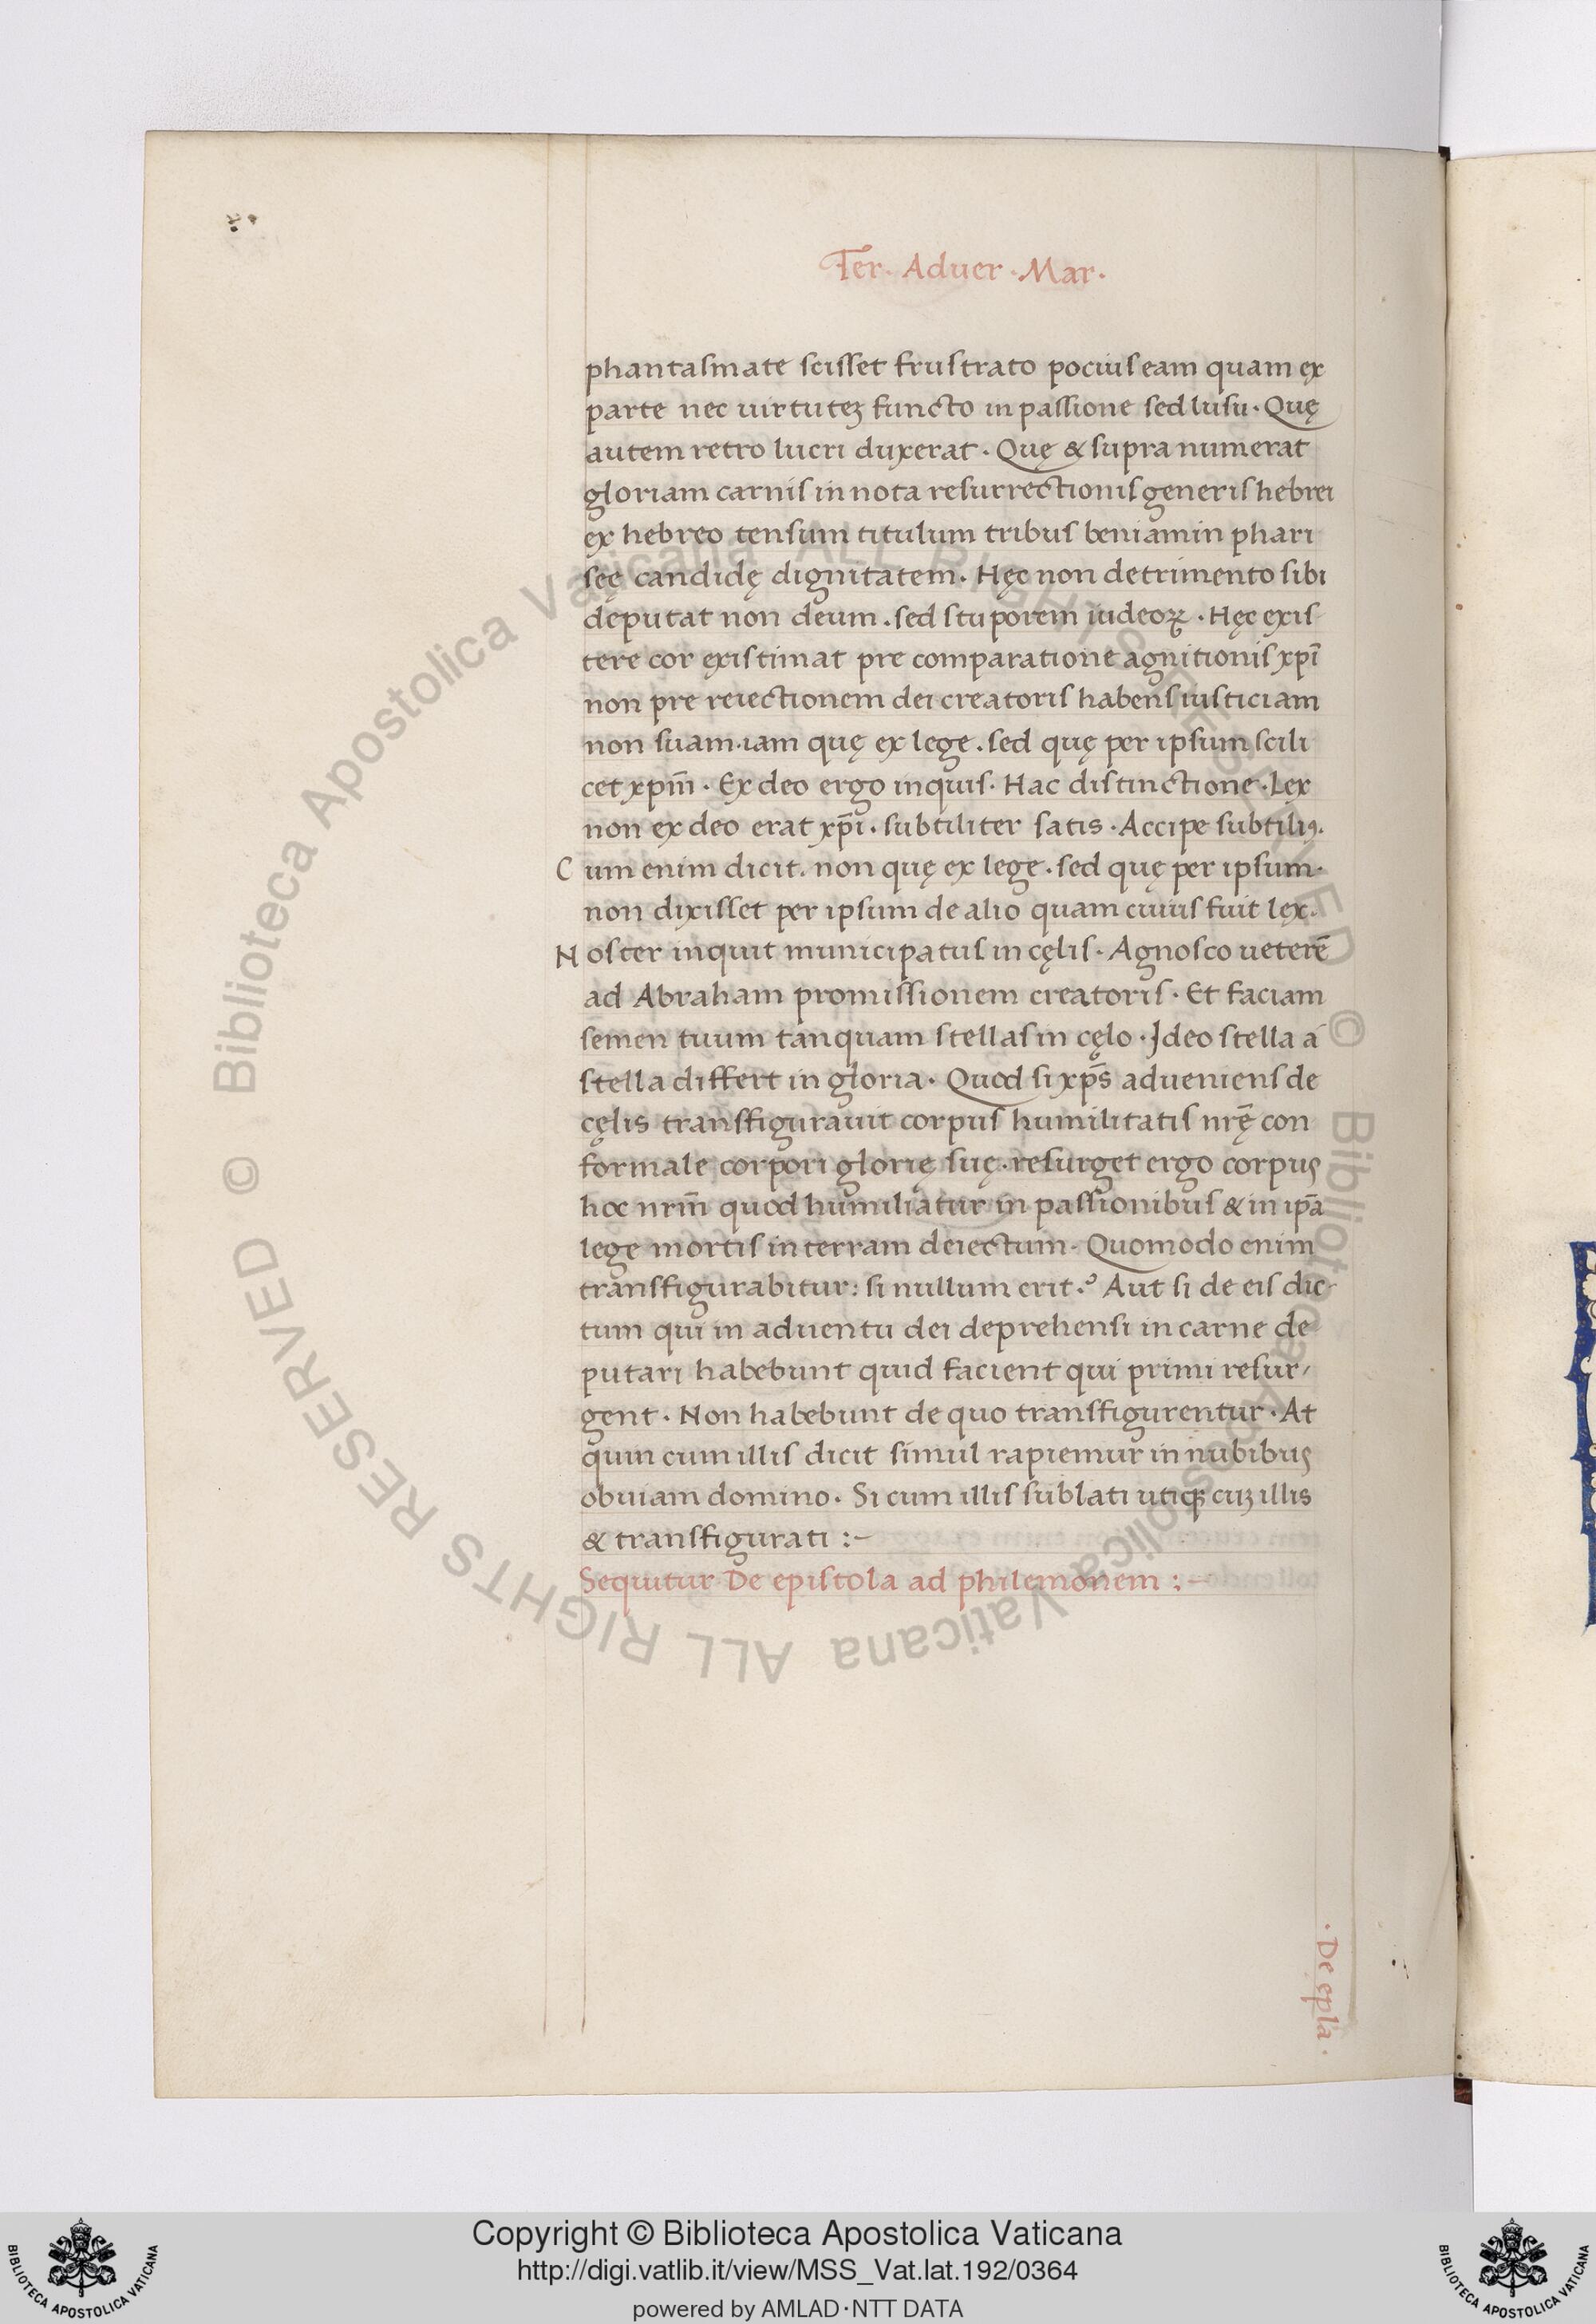 Ter. Aduer. Mar.
phantasmate scisset frustrato pociuseam quam ex
parte nec uirtuteꝫ functo in passione sed lusu. Quę
autem retro lucri duxerat. Quę & supra numerat
gloriam carnis in nota resurrectionis generis hebrei
ex hebreo tensum titulum tribus beniamin phari
seę candidę dignitatem. Hęc non detrimento sibi
deputat non deum. sed stuporem iudeoꝝ. Hęc exis
tere cor existimat pre comparatione agnitionis xpi̅
non pre reiectionem dei creatoris habens iusticiam
non suam. iam quę ex lege. sed quę per ipsum scili
cet xpm̅. Ex deo ergo inquis. Hac distinctione. Lex
non ex deo erat xp̅i. subtiliter satis. Accipe subtiliꝯ.
Cum enim dicit. non quę ex lege. sed quę per ipsum.
non dixisset per ipsum de alio quam cuius fuit lex.
Noster inquit municipatus in cęlis. Agnosco ueterē
ad Abraham promissionem creatoris. Et faciam
semen tuum tanquam stellas in cęlo. Ideo stella á
stella differt in gloria. Quod si xp̅s adueniens de
cęlis transfigurauit corpus humilitatis nrę̅ con
formale corpori glorię suę. resurget ergo corpus
hoc nrm̅ quod humiliatur in passionibus & in ip̅a
lege mortis in terram deiectum. Quomodo enim
transfigurabitur: si nullum erit? Aut si de eis dic-
tum qui in aduentu dei deprehensi in carne de
putari habebunt quid facient qui primi resur-
gent. Non habebunt de quo transfigurentur. At
quin cum illis dicit simul rapiemur in nubibus
obuiam domino. Si cum illis sublati utiqꝫ cuꝫ illis
& transfigurati :-
Sequitur De epistola ad philemonem :-
. De epla .
Copyright © Biblioteca Apostolica Vaticana
http://digi.vatlib.it/view/MSS_Vat.lat.192/0364
powered by AMLAD·NTT DATA
BIBLIOTECA APOSTOLICA VATICANA
BIBLIOTECA APOSTOLICA VATICANA
© Biblioteca Apostolica Vaticana ALL RIGHTS RESERVED © Biblioteca Apostolica Vaticana ALL RIGHTS RESERVED